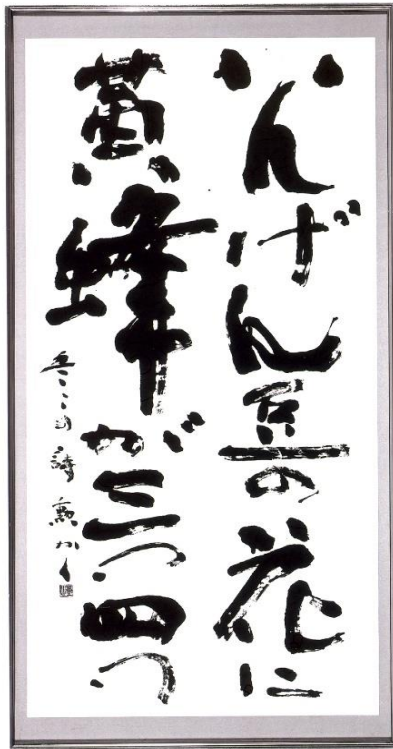 いんげん豆の花に
黄蜂が三つ四つ